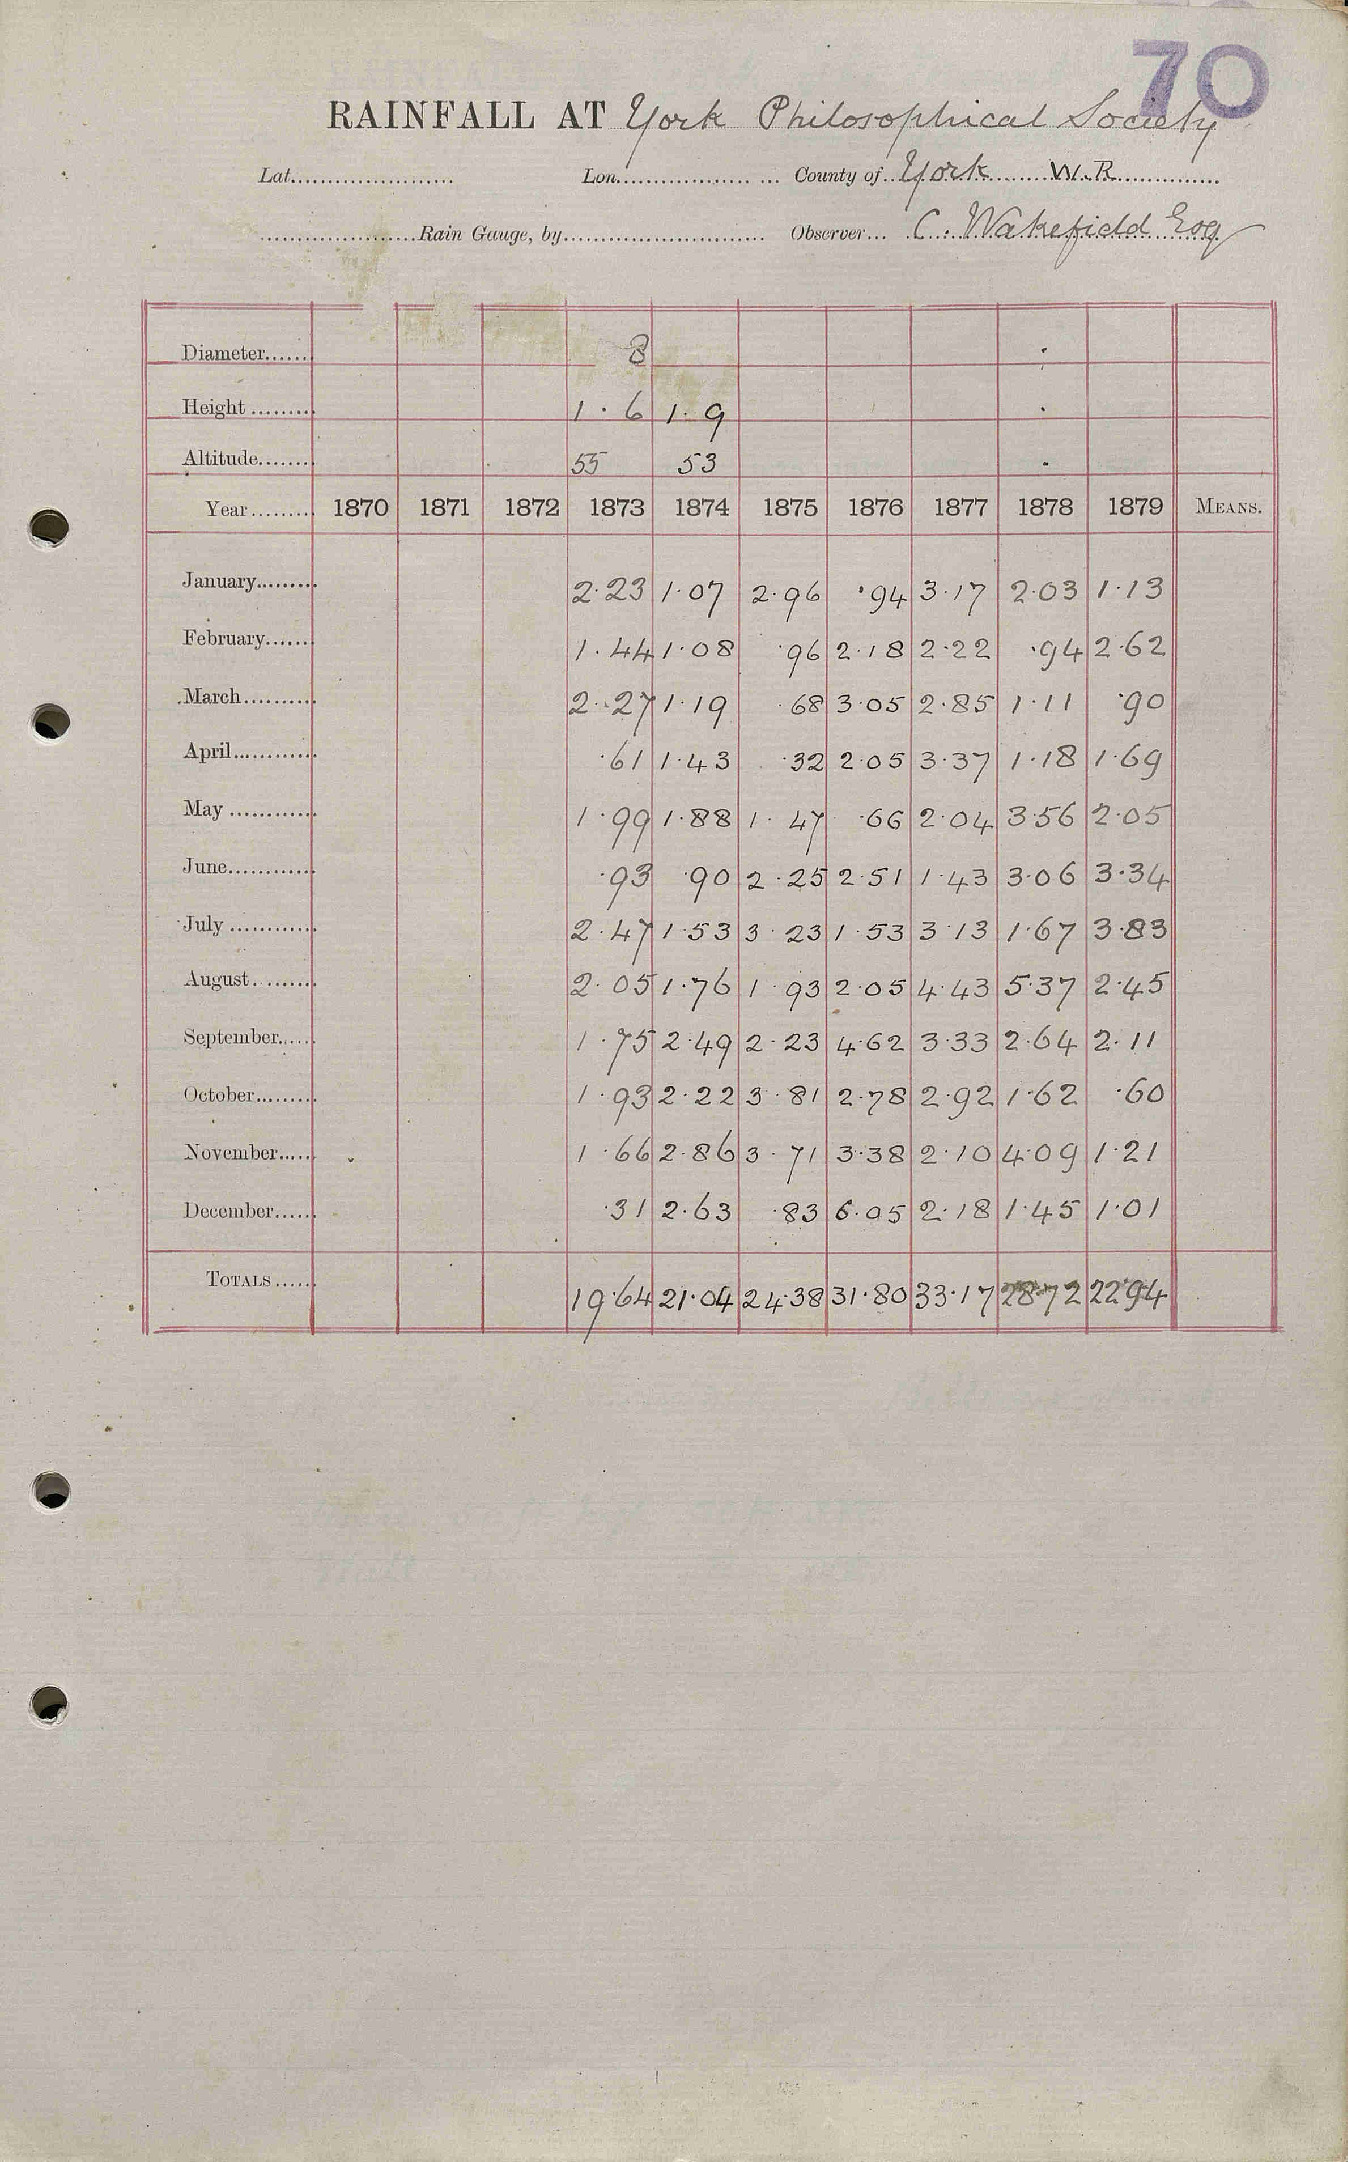 70
RAINFALL AT York Philosophical Society
Lat. Lon. County of York W.R
Rain Gauge, by Observer C. Wakefield Esq
Diameter 8
Height 1·6 1·9
Altitude 55 53
Year 1870 1871 1872 1873 1874 1875 1876 1877 1878 1879 MEANS.
January 2·23 1·07 2·96 ·94 3·17 2·03 1·13
February 1·44 1·08 ·96 2·18 2·22 ·94 2·62
March 2·27 1·19 ·68 3·05 2·85 1·11 ·90
April ·61 1·43 ·32 2·05 3·37 1·18 1·69
May 1·99 1·88 1·47 ·66 2·04 3·56 2·05
June ·93 ·90 2·25 2·51 1·43 3·06 3·34
July 2·47 1·53 3·23 1·53 3·13 1·67 3·83
August 2·05 1·76 1·93 2·05 4·43 5·37 2·45
September 1·75 2·49 2·23 4·62 3·33 2·64 2·11
October 1·93 2·22 3·81 2·78 2·92 1·62 ·60
November 1·66 2·86 3·71 3·38 2·10 4·09 1·21
December ·31 2·63 ·83 6·05 2·18 1·45 1·01
TOTALS 19·64 21·04 24·38 31·80 33·17 28·72 22·94